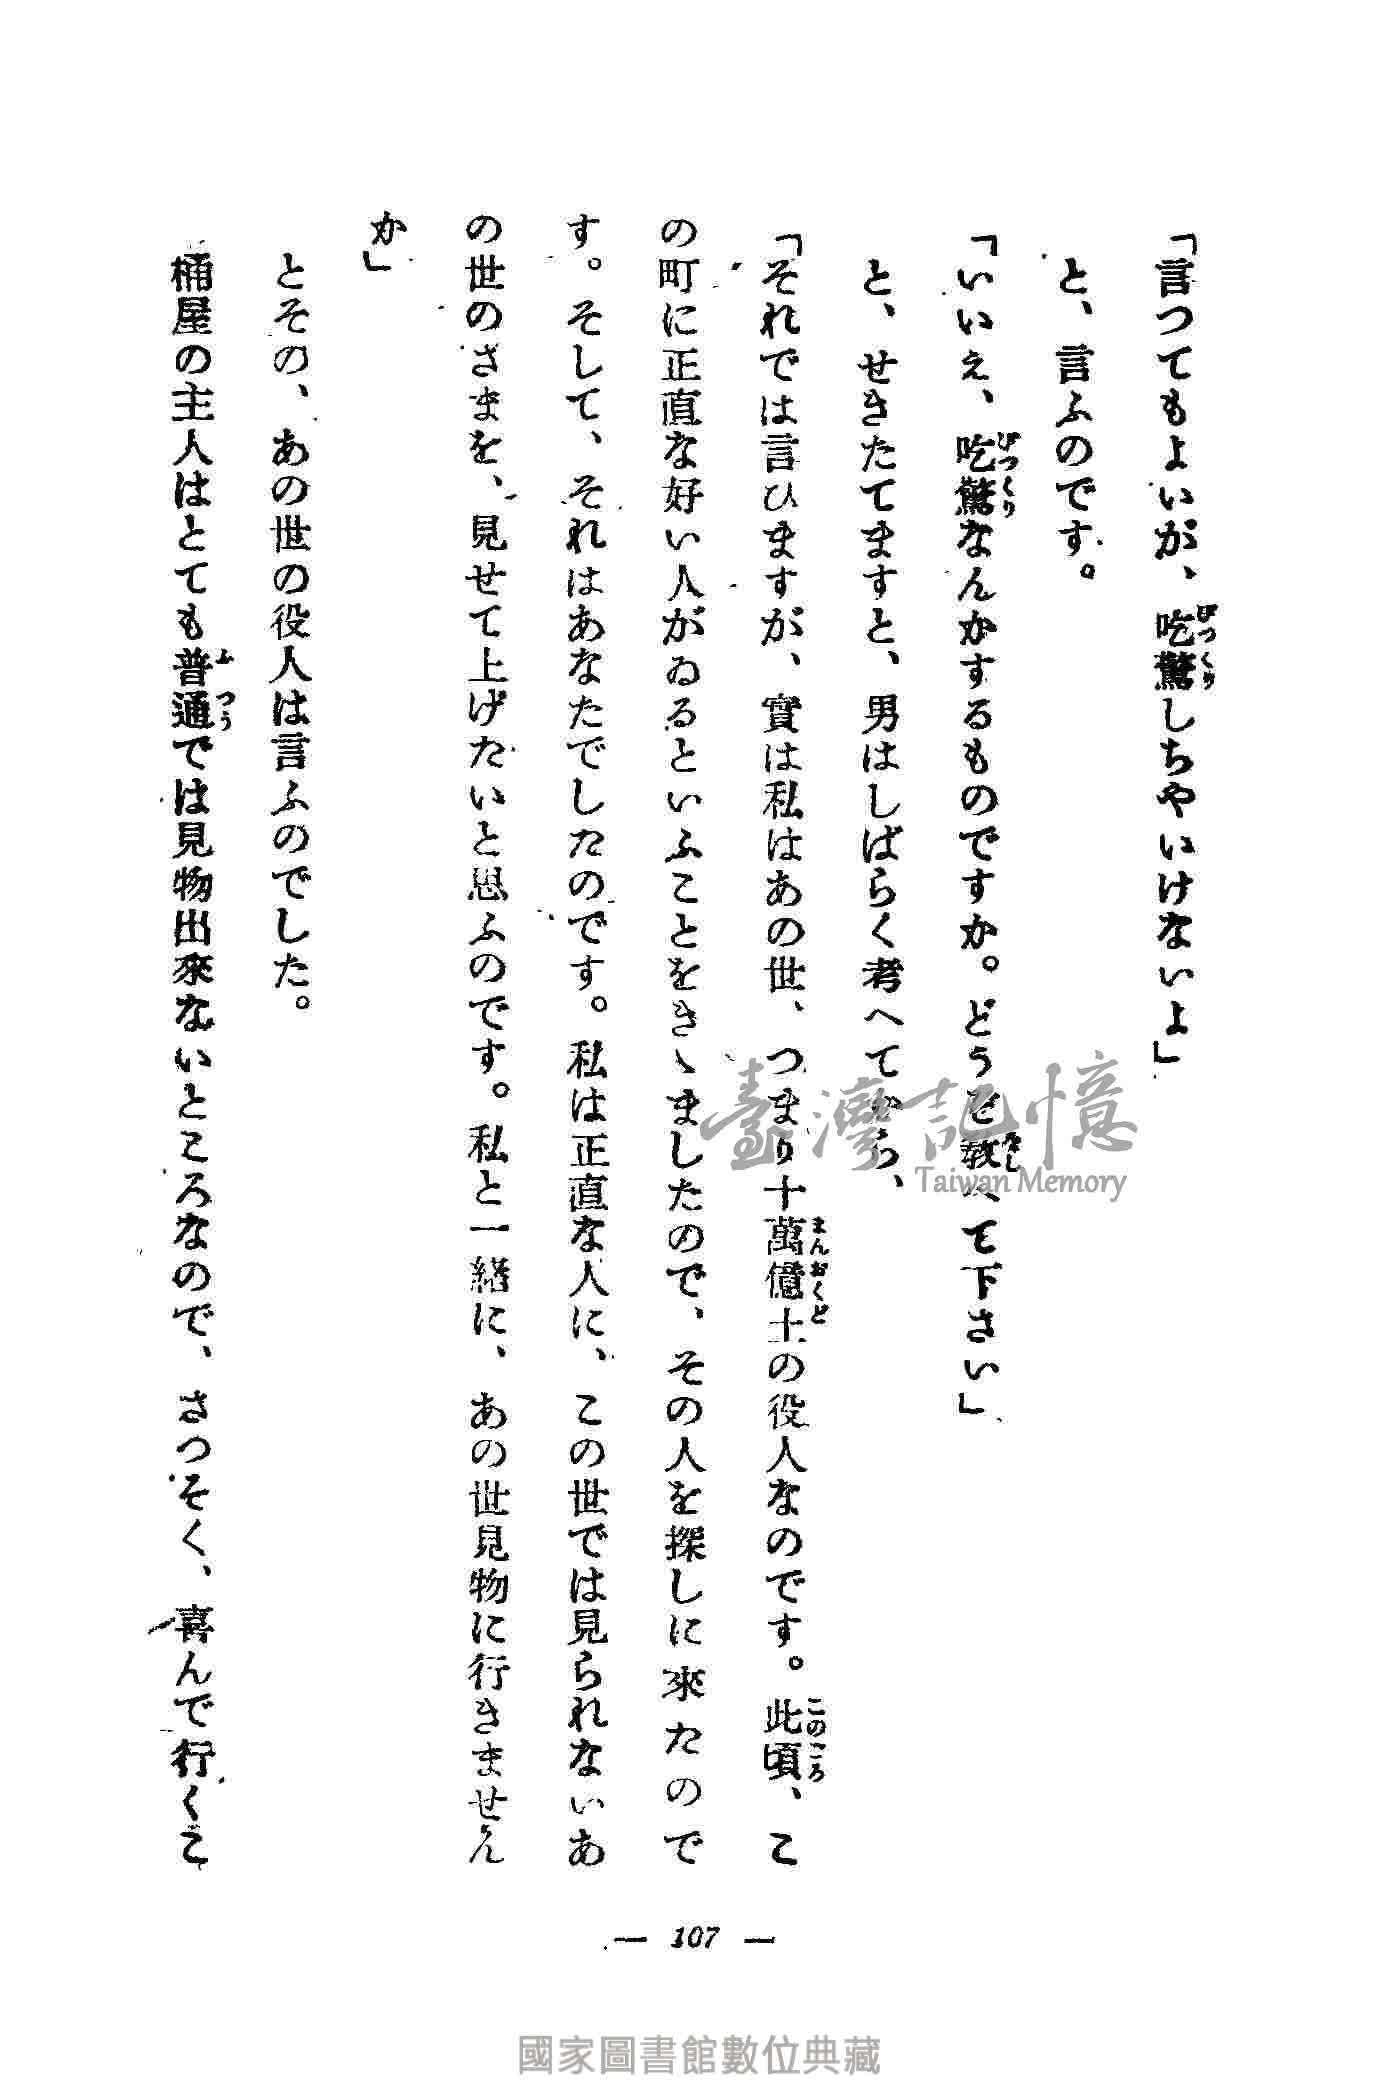 「言つてもよいが、吃驚しちやいけないよ」
と、言ふのです。
「いいえ、吃驚なんかするものですか。どうぞ教へて下さい」
と、せきたてますと、男はしばらく考へてから、
「それでは言ひますが、實は私はあの世、つまり十萬億土の役人なのです。此頃、こ
の町に正直な好い人がゐるといふことをきゝましたので、その人を探しに來たので
す。そして、それはあなたでしたのです。私は正直な人に、この世では見られないあ
の世のさまを、見せて上げたいと思ふのです。私と一緒に、あの世見物に行きません
か」
とその、あの世の役人は言ふのでした。
桶屋の主人はとても普通では見物出來ないところなので、さつそく、喜んで行くこ
— 107 —
臺灣記憶
Taiwan Memory
國家圖書館數位典藏